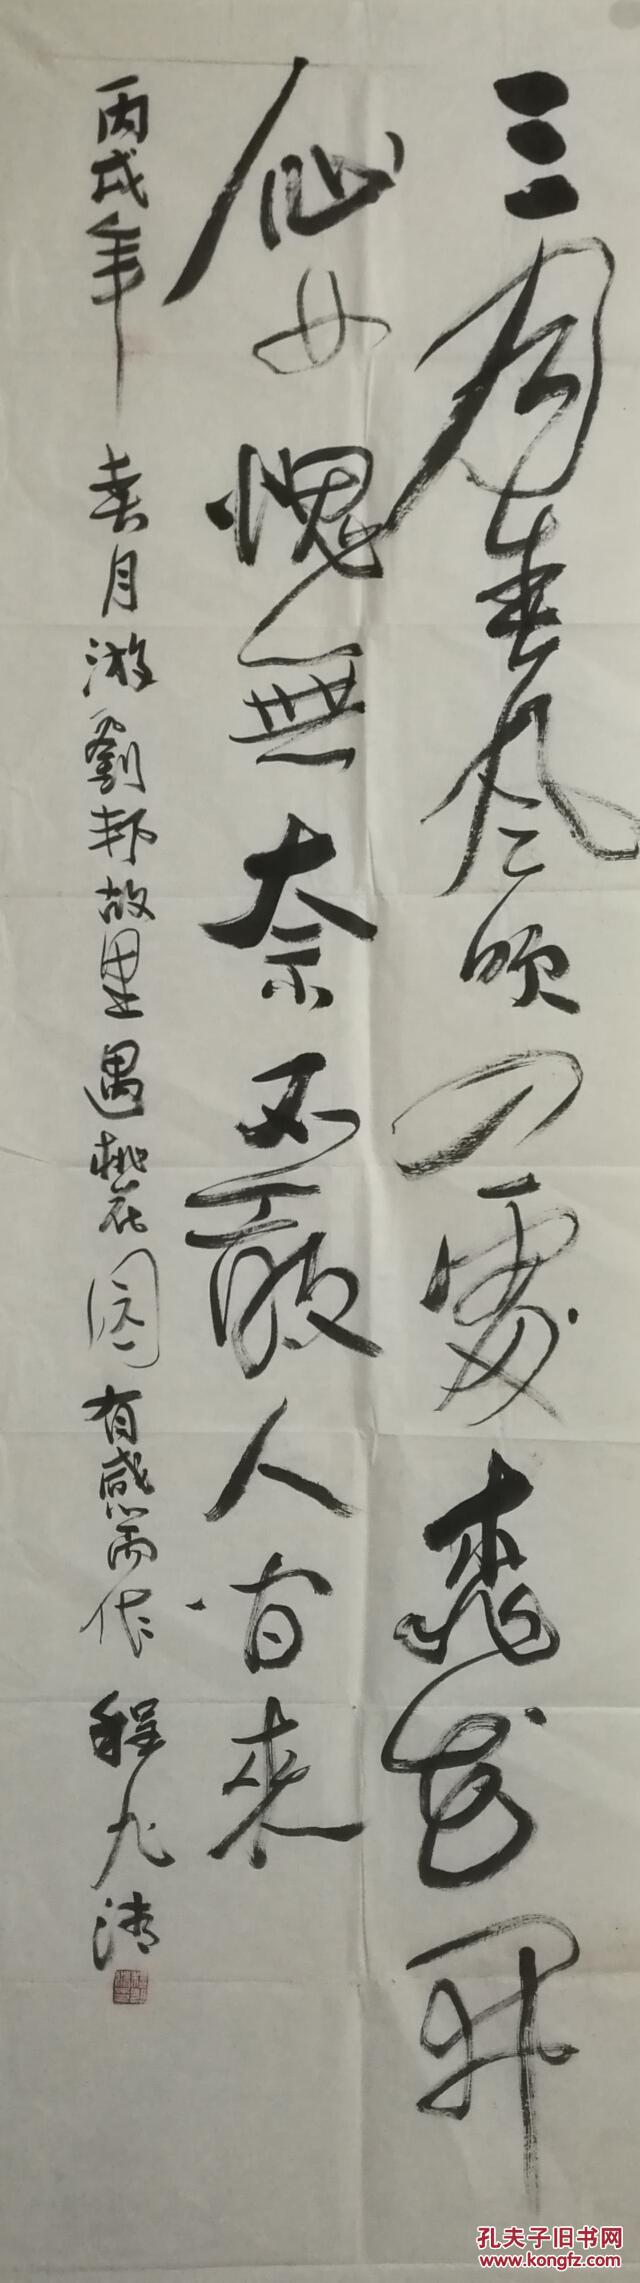 三月春风吹又處桃花开
仙女愧無奈不敢人间来
丙戌年春月游劉邦故里遇桃花园有感而作程九清
孔夫子旧书网
www.kongfz.com